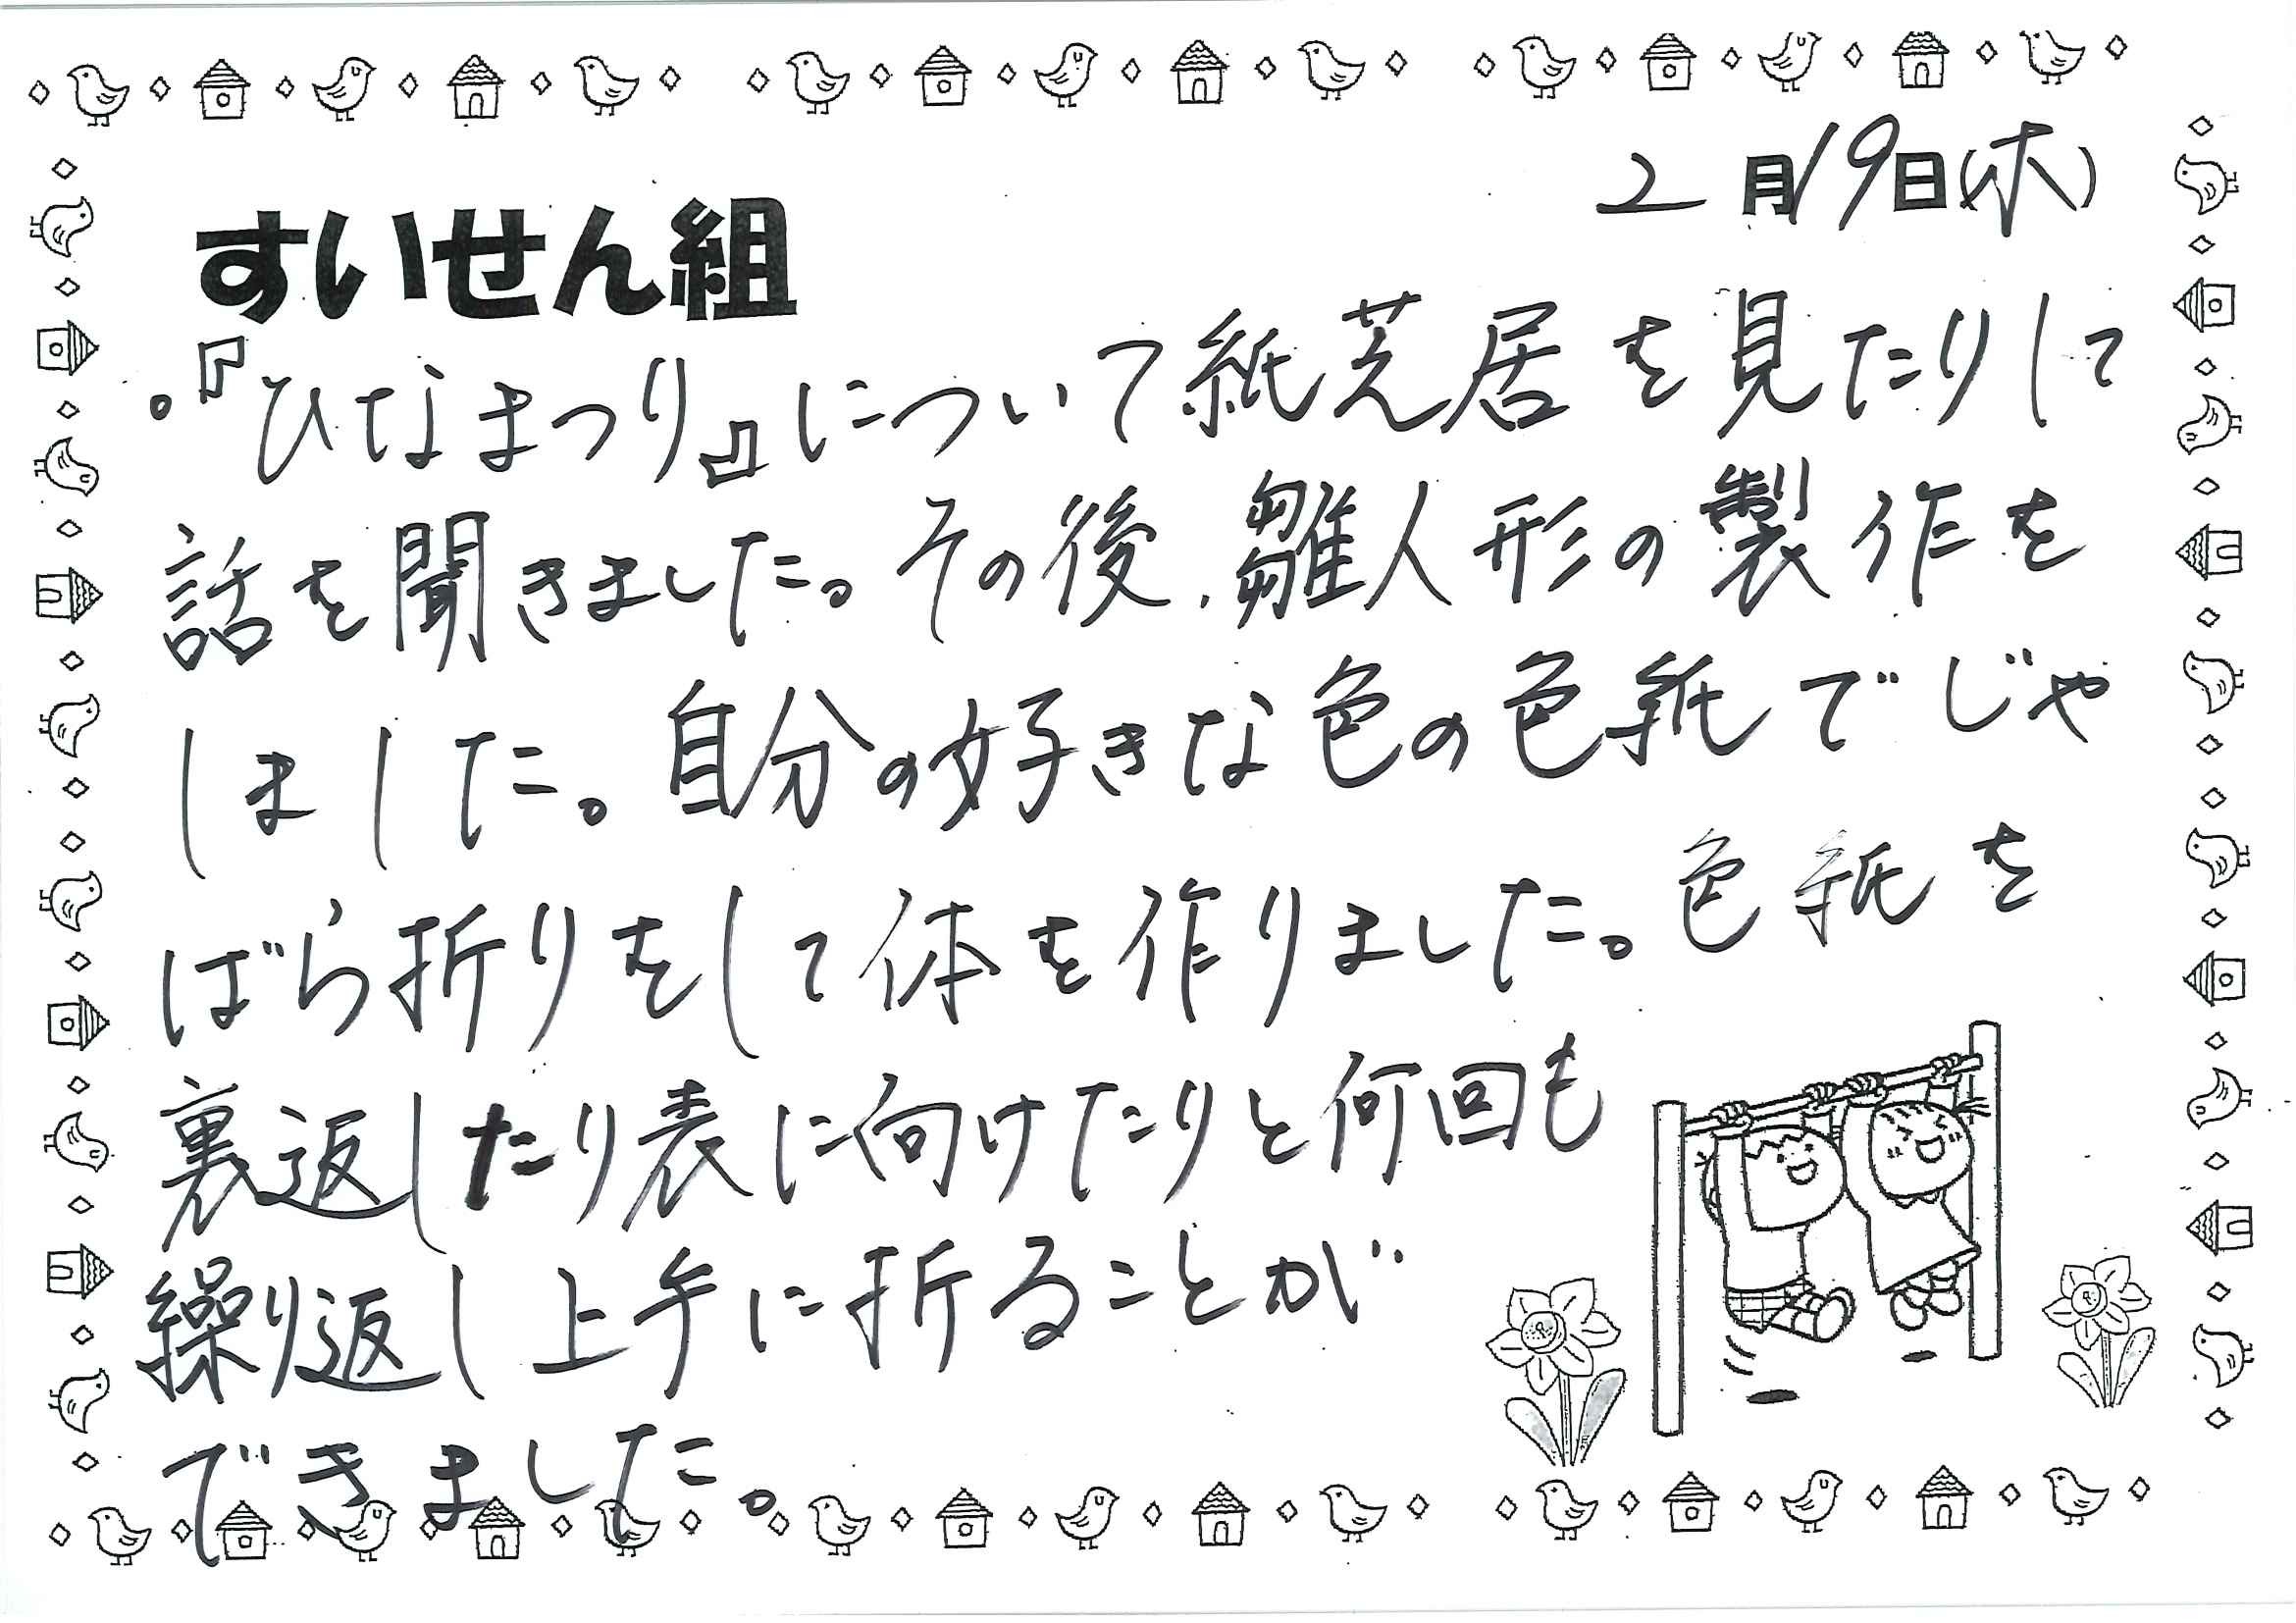 2月19日(木)
すいせん組
。『ひなまつり』について紙芝居を見たりして
話を聞きました。その後、雛人形の製作を
しました。自分の好きな色の色紙でじゃ
ばら折りをして体を作りました。色紙を
裏返したり表に向けたりと何回も
繰り返し上手に折ることが
できました。